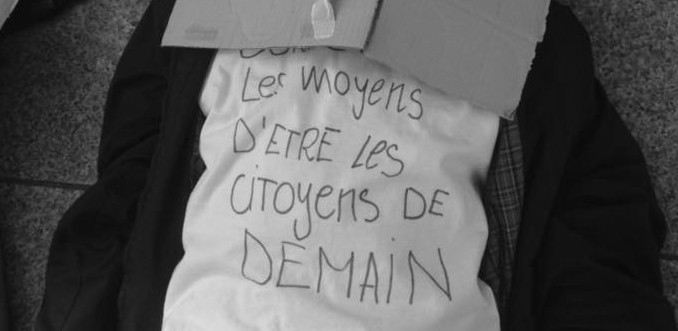 Les moyens
D'ETRE Les
citoyens DE
DEMAIN